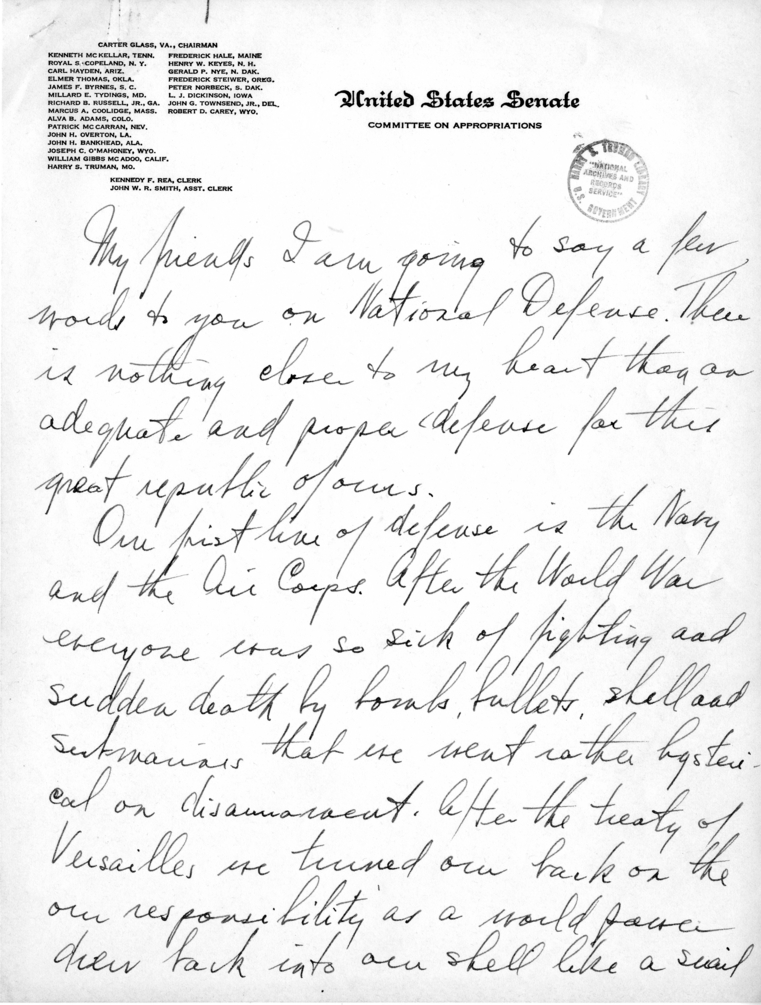 CARTER GLASS, VA., CHAIRMAN
KENNETH MC KELLAR, TENN.
ROYAL S. COPELAND, N. Y.
CARL HAYDEN, ARIZ.
ELMER THOMAS, OKLA.
JAMES F. BYRNES, S. C.
MILLARD E. TYDINGS, MD.
RICHARD B. RUSSELL, JR., GA.
MARCUS A. COOLIDGE, MASS.
ALVA B. ADAMS, COLO.
PATRICK MC CARRAN, NEV.
JOHN H. OVERTON, LA.
JOHN H. BANKHEAD, ALA.
JOSEPH C. O'MAHONEY, WYO.
WILLIAM GIBBS MC ADOO, CALIF.
HARRY S. TRUMAN, MO.
FREDERICK HALE, MAINE
HENRY W. KEYES, N. H.
GERALD P. NYE, N. DAK.
FREDERICK STEIWER, OREG.
PETER NORBECK, S. DAK.
L. J. DICKINSON, IOWA
JOHN G. TOWNSEND, JR., DEL.
ROBERT D. CAREY, WYO.
KENNEDY F. REA, CLERK
JOHN W. R. SMITH, ASST. CLERK
United States Senate
COMMITTEE ON APPROPRIATIONS
HARRY S. TRUMAN LIBRARY
"NATIONAL
ARCHIVES AND
RECORDS
SERVICE"
U.S. GOVERNMENT
My friends I am going to say a few
words to you on National Defense. There
is nothing closer to my heart than an
adequate and proper defense for this
great republic of ours.
Our first line of defense is the Navy
and the Air Corps. After the World War
everyone was so sick of fighting and
sudden death by bombs, bullets, shell and
submarines that we went rather hysteri-
cal on disarmament. After the treaty of
Versailles we turned our back on the
our responsibility as a world power
drew back into our shell like a snail